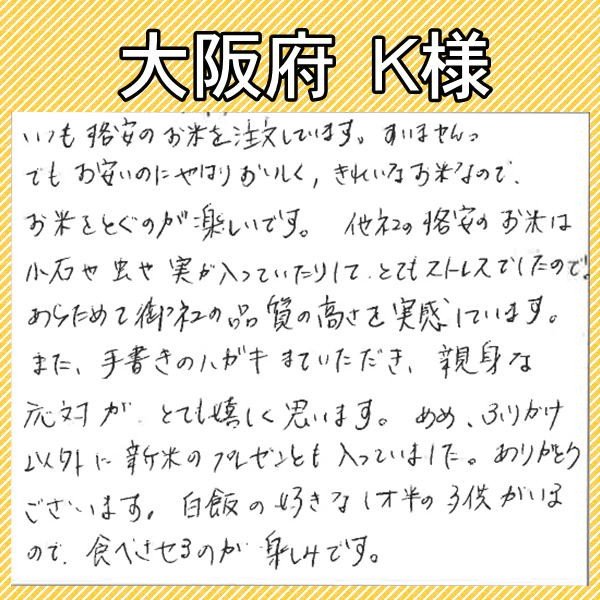 大阪府 K様
いつも格安のお米を注文しています。すいませんっ
でもお安いのにやはりおいしく、きれいなお米なので、
お米をとぐのが楽しいです。 他社の格安のお米は
小石や虫や実が入っていたりして、とてもストレスでしたので、
あらためて御社の品質の高さを実感しています。
また、手書きのハガキまでいただき、親身な
応対が、とても嬉しく思います。 あめ、ふりかけ
以外に新米のプレゼントも入っていました。ありがとう
ございます。白飯の好きな1才半の子供がいる
ので、食べさせるのが楽しみです。